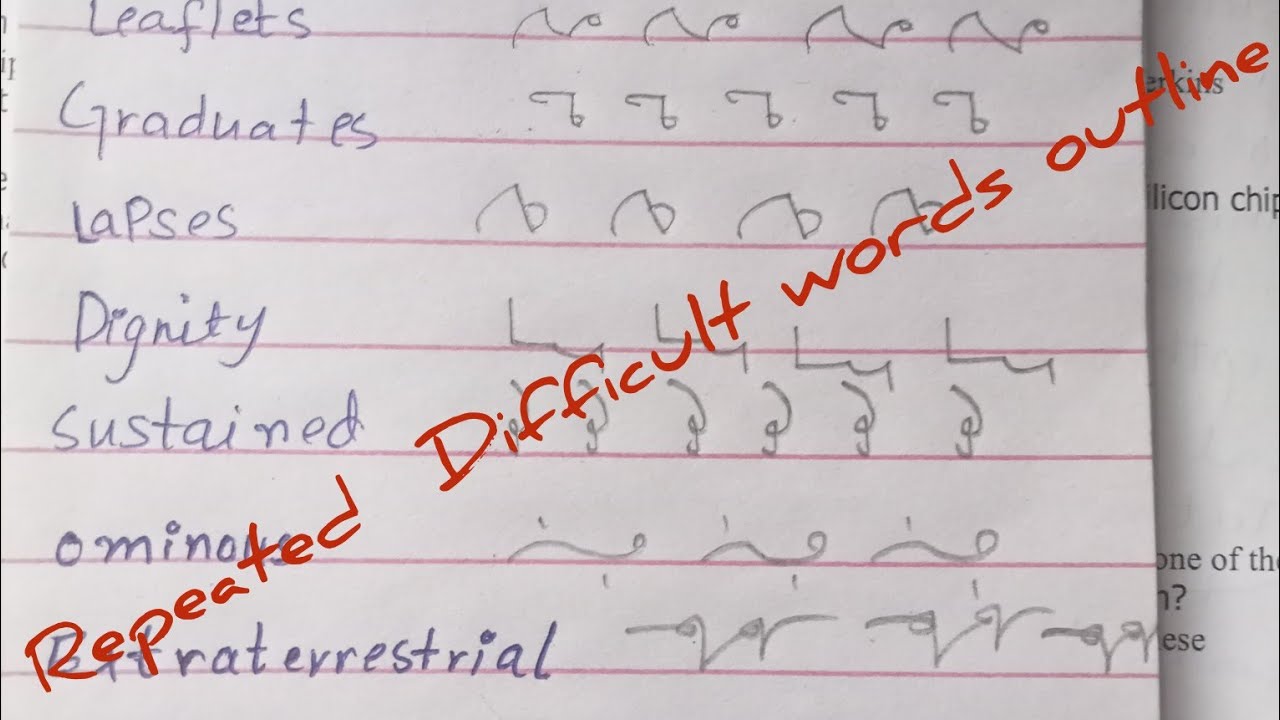 Leaflets
Graduates
Lapses
Dignity
Sustained
ominous
Extraterrestrial
Repeated Difficult words outline
ilicon chip
one of the
ese